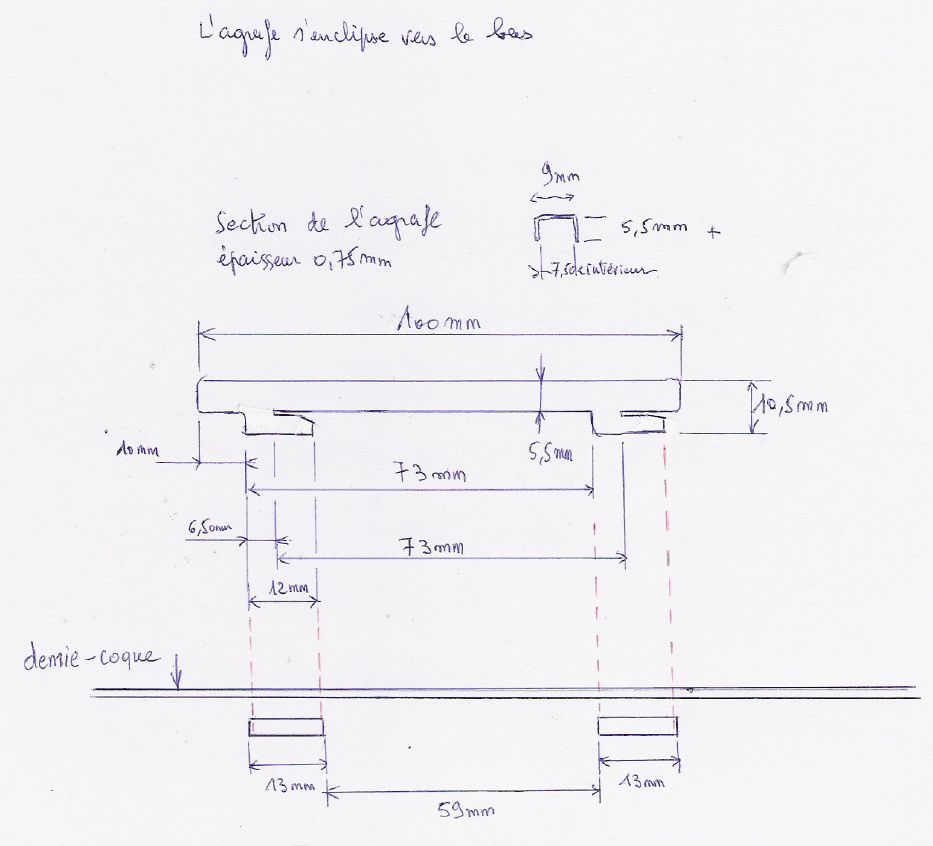 L'agrafe s'enclipse vers le bas
9mm
Section de l'agrafe
épaisseur 0,75mm
5,5mm +
7,5 de intérieur
100mm
10,5mm
10mm
5,5mm
73mm
6,50mm
73mm
12mm
demie-coque
13mm
13mm
59mm